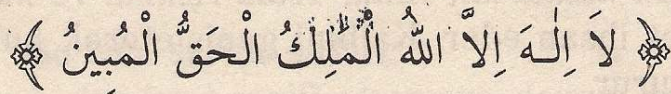 ﴿ لَا اِلٰـهَ اِلاَّ اللهُ الْمَلِكُ الْحَقُّ الْمُبِينُ ﴾